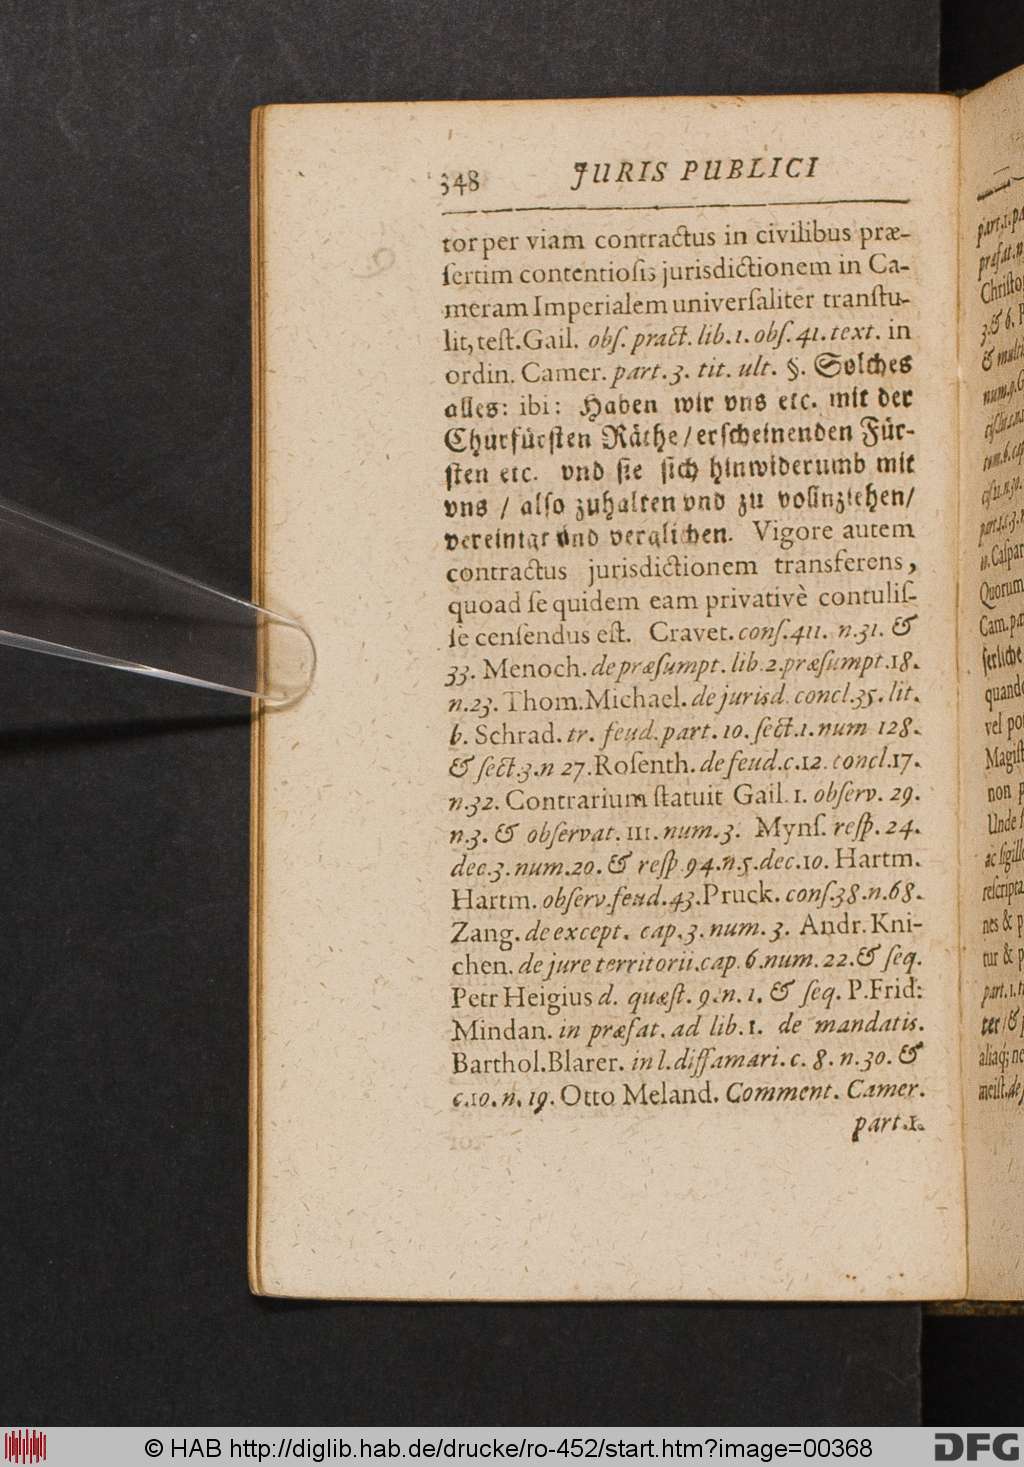 348 JURIS PUBLICI
tor per viam contractus in civilibus præ-
ſertim contentioſis jurisdictionem in Ca-
meram Imperialem univerſaliter tranſtu-
lit, teſt. Gail. obſ. pract. lib. 1. obſ. 41. text. in
ordin. Camer. part. 3. tit. ult. §. Solches
alles: ibi: Haben wir vns etc. mit der
Churfürſten Räthe/ erſcheinenden Für-
ſten etc. vnd ſie ſich hinwiderumb mit
vns / alſo zuhalten vnd zu volnziehen/
vereinigt und verglichen. Vigore autem
contractus jurisdictionem transferens,
quoad ſe quidem eam privativè contuliſ-
ſe cenſendus eſt. Cravet. conſ. 411. n. 31. &
33. Menoch. de præſumpt. lib. 2. præſumpt. 18.
n. 23. Thom. Michael. de jurisd. concl. 35. lit.
b. Schrad. tr. feud. part. 10. ſect. 1. num 128.
& ſect. 3. n 27. Roſenth. de feud. c. 12. concl. 17.
n. 32. Contrarium ſtatuit Gail. 1. obſerv. 29.
n. 3. & obſervat. 111. num. 3. Mynſ. reſp. 24.
dec. 3. num. 20. & reſp 94. n. 5. dec. 10. Hartm.
Hartm. obſerv. feud. 43. Pruck. conſ. 38. n. 68.
Zang. de except. cap. 3. num. 3. Andr. Kni-
chen. de jure territorii. cap. 6. num. 22. & ſeq.
Petr Heigius d. quæſt. 9. n. 1. & ſeq. P. Frid:
Mindan. in præfat. ad lib. 1. de mandatis.
Barthol. Blarer. in l. diffamari. c. 8. n. 30. &
c. 10. n. 19. Otto Meland. Comment. Camer.
part. 1.
© HAB http://diglib.hab.de/drucke/ro-452/start.htm?image=00368
DFG